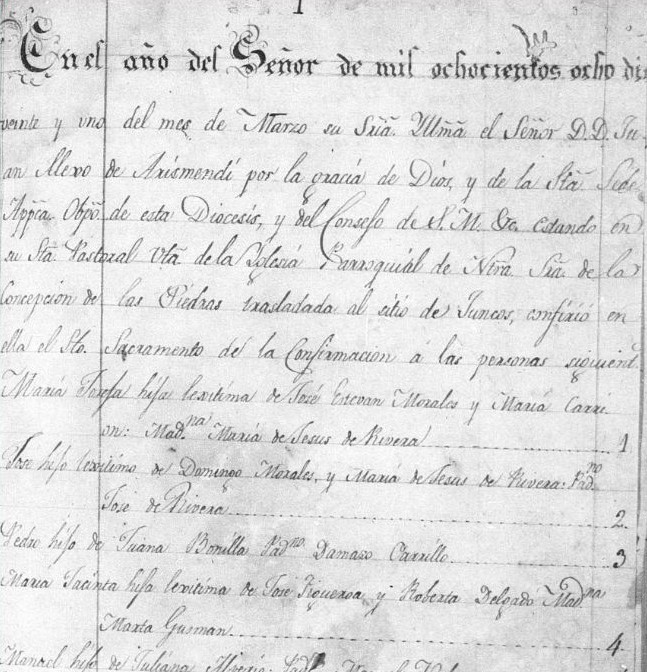 1
En el año del Señor de mil ochocientos ocho di
veinte y uno del mes de Marzo su Sria. Ulmã el Señor D.D. Ju
an Alexo de Arismendi por la gracia de Dios, y de la Sta Sede
Appca. Obpõ de esta Diocesis, y del Consejo de S. M. &c. estando en
su Sta Pastoral Vtã de la Yglesia Parroquial de Ntra Sra. de la
Concepcion de las Piedras trasladada al sitio de Juncos, confirió en
ella el Sto. Sacramento de la Confirmacion á las personas siguient
Maria Josefa hija lexitima de José Estevan Morales y Maria Carri
on: Mad.na Maria de Jesus de Rivera 1
Jose hijo lexitimo de Domingo Morales, y Maria de Jesus de Rivera: Pad.no
José de Rivera 2
Pedro hijo de Juana Bonilla Pad.no Damaso Carrillo 3
Maria Jacinta hija lexitima de Jose Figueroa y Roberta Delgado Mad.na
Marta Gusman 4
Manuel hijo de Juliana